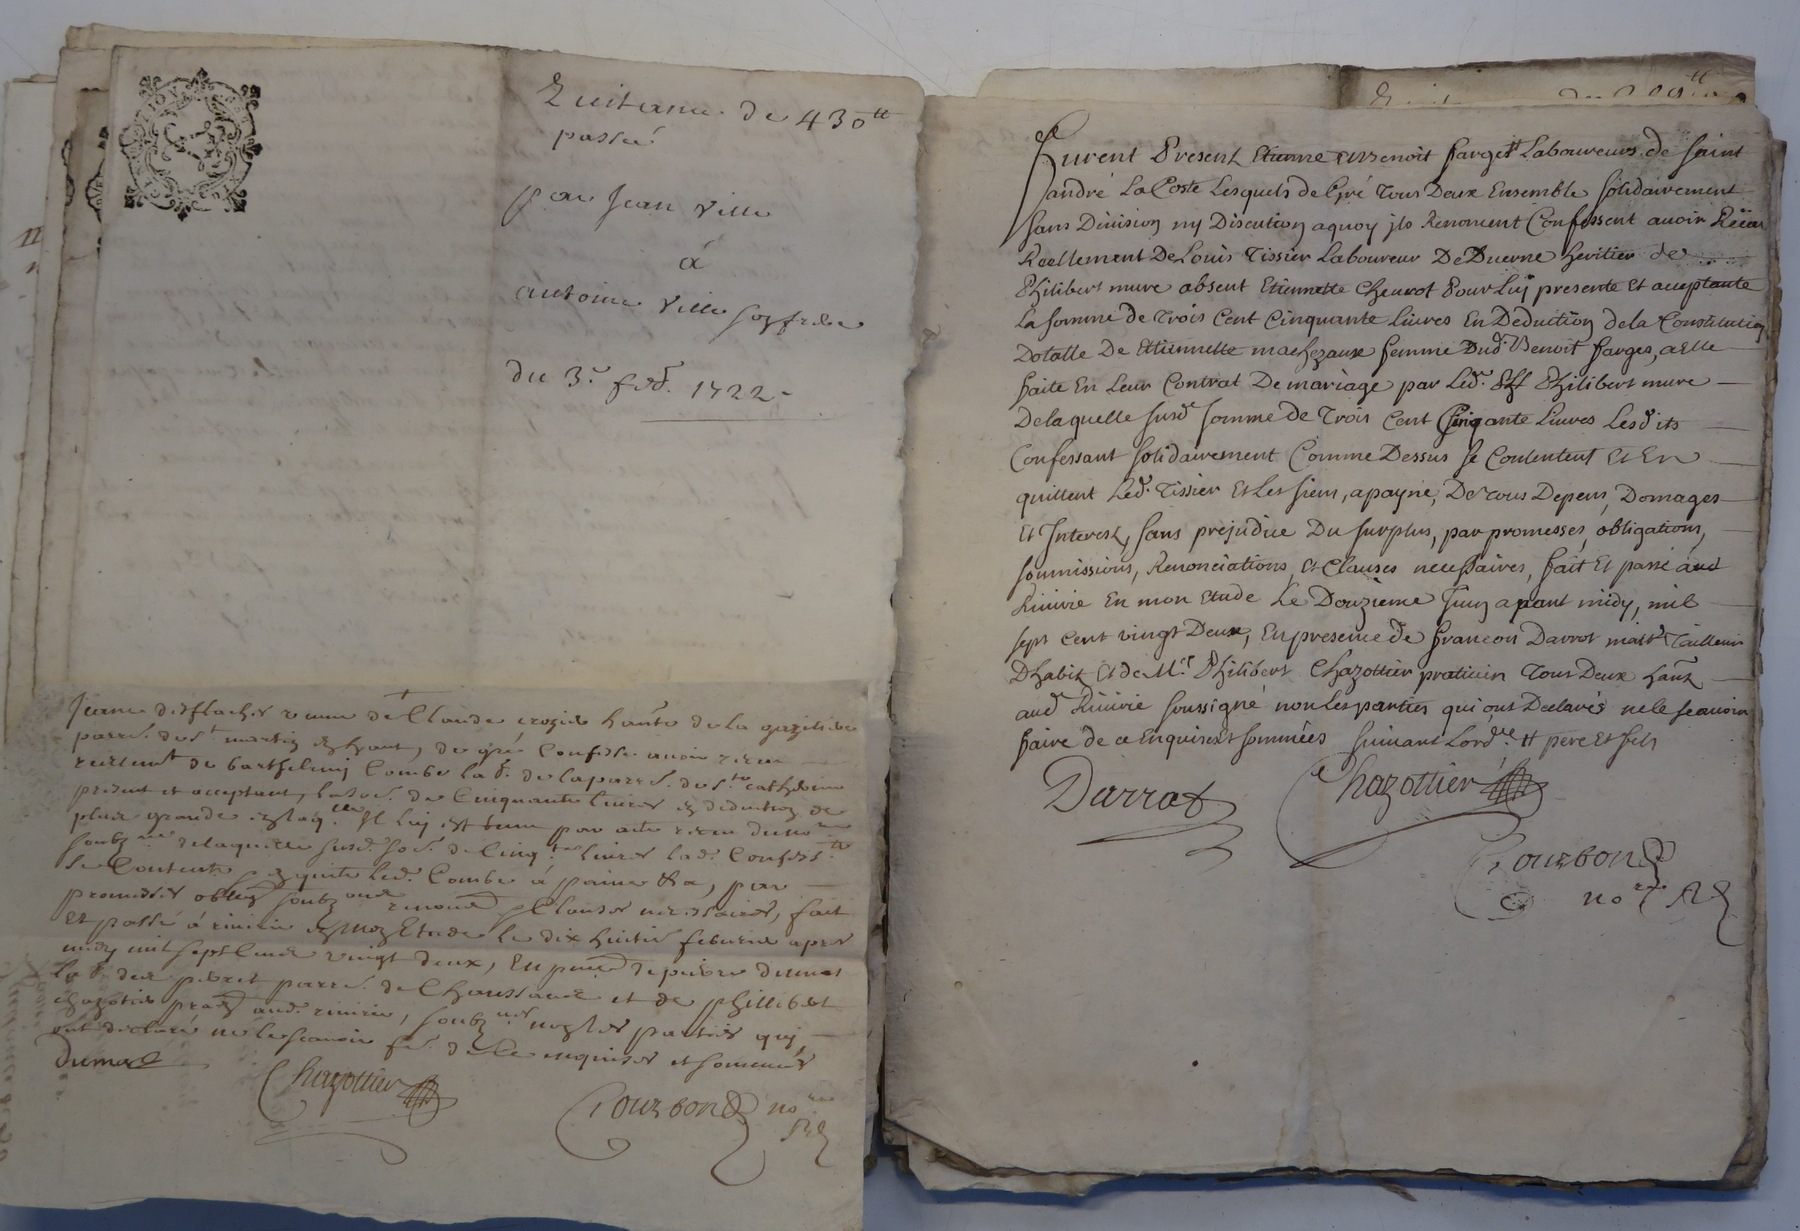 Quitance de 430ᵗᵗ
passée
par Jean Ville
à
antoine Ville son frere
du 3.ᵉ fev. 1722 -
Jeanne desflaches veuve de Claude crozier hante de la
parrˢ. de sᵗ martin en haut, de gré Confesse avoir receu
reelemᵗ de barthelemy Combe lab. de la parrˢ. de sᵗᵉ catherine
present et acceptant, la so. de Cinquante livres en deduction de
plus grande en laqˡˡᵉ Il luy est tenu par acte receu du noʳᵉ
soubzⁿᵉ de laquelle susd. so. de Cinqᵗᵉ livres lad. Confessᵗᵉ
se Contente en quite led. Combe à paine &a, par
promesses oblig soubz renonc Clauses necessaires, fait
Et passé à rivirie en mon Etude le dix huitie febvrier apres
midy mil sept Cent vingt deux, En pnce de pierre dumas
lab. de parrˢ. de Chaussand et de phillibert
chazotier pratⁿ aud. rivirie, soubzⁿᵉˢ non les parties qui
ont declaré ne le scavoir fe. de Ce enquises et sommées
Dumas
Chazottier
Gourbon noʳᵉ
Rl
Furent Present Etienne et Benoit farget Laboureurs de saint
andré La Coste Lesquels de Gré Tous Deux Ensemble solidairement
sans Division ny Discution aquoy jls Renoncent Confessent avoir Reçeu
Reellement De Louis Tissier Laboureur De Duerne heritier de
Philibert mure absent Etiennette Cheurot Pour Luy presente Et acceptante
La somme de Trois Cent Cinquante Livres En Deduction dela Constitution
Dotalle De Etiennette machezaux femme Dud. Benoit farges, a Elle
faite En Leur Contrat De mariage par Led. Sʳ Philibert mure
De laquelle susdᵉ somme de Trois Cent Cinqante Livres Lesdits
Confessant solidairement Comme Dessus se Contentent Et En
quittent Led. Tissier Et Les siens, a payne, De tous Depens, Domages
Et Interest, sans prejudice Du surplus, par promesses, obligations,
soumissions, Renonciations, Et Clauses necessaires, fait Et passé aud
Rivirie En mon Etude Le Douzieme Juin avant midy, mil
sept cent vingt Deux, En presence de francois Darrot maitʳᵉ Tailleur
Dhabit Et de Mʳᵉ Philibert Chazottier praticien Tous Deux hañt
aud Rivirie soussigné non Les parties qui ont Declarés ne le scavoir
faire de ce Enquises et sommées suivant Lordᶜᵉ tt pere Et fils
Darrot
Chazottier
Gourbon
noʳᵉ Rl